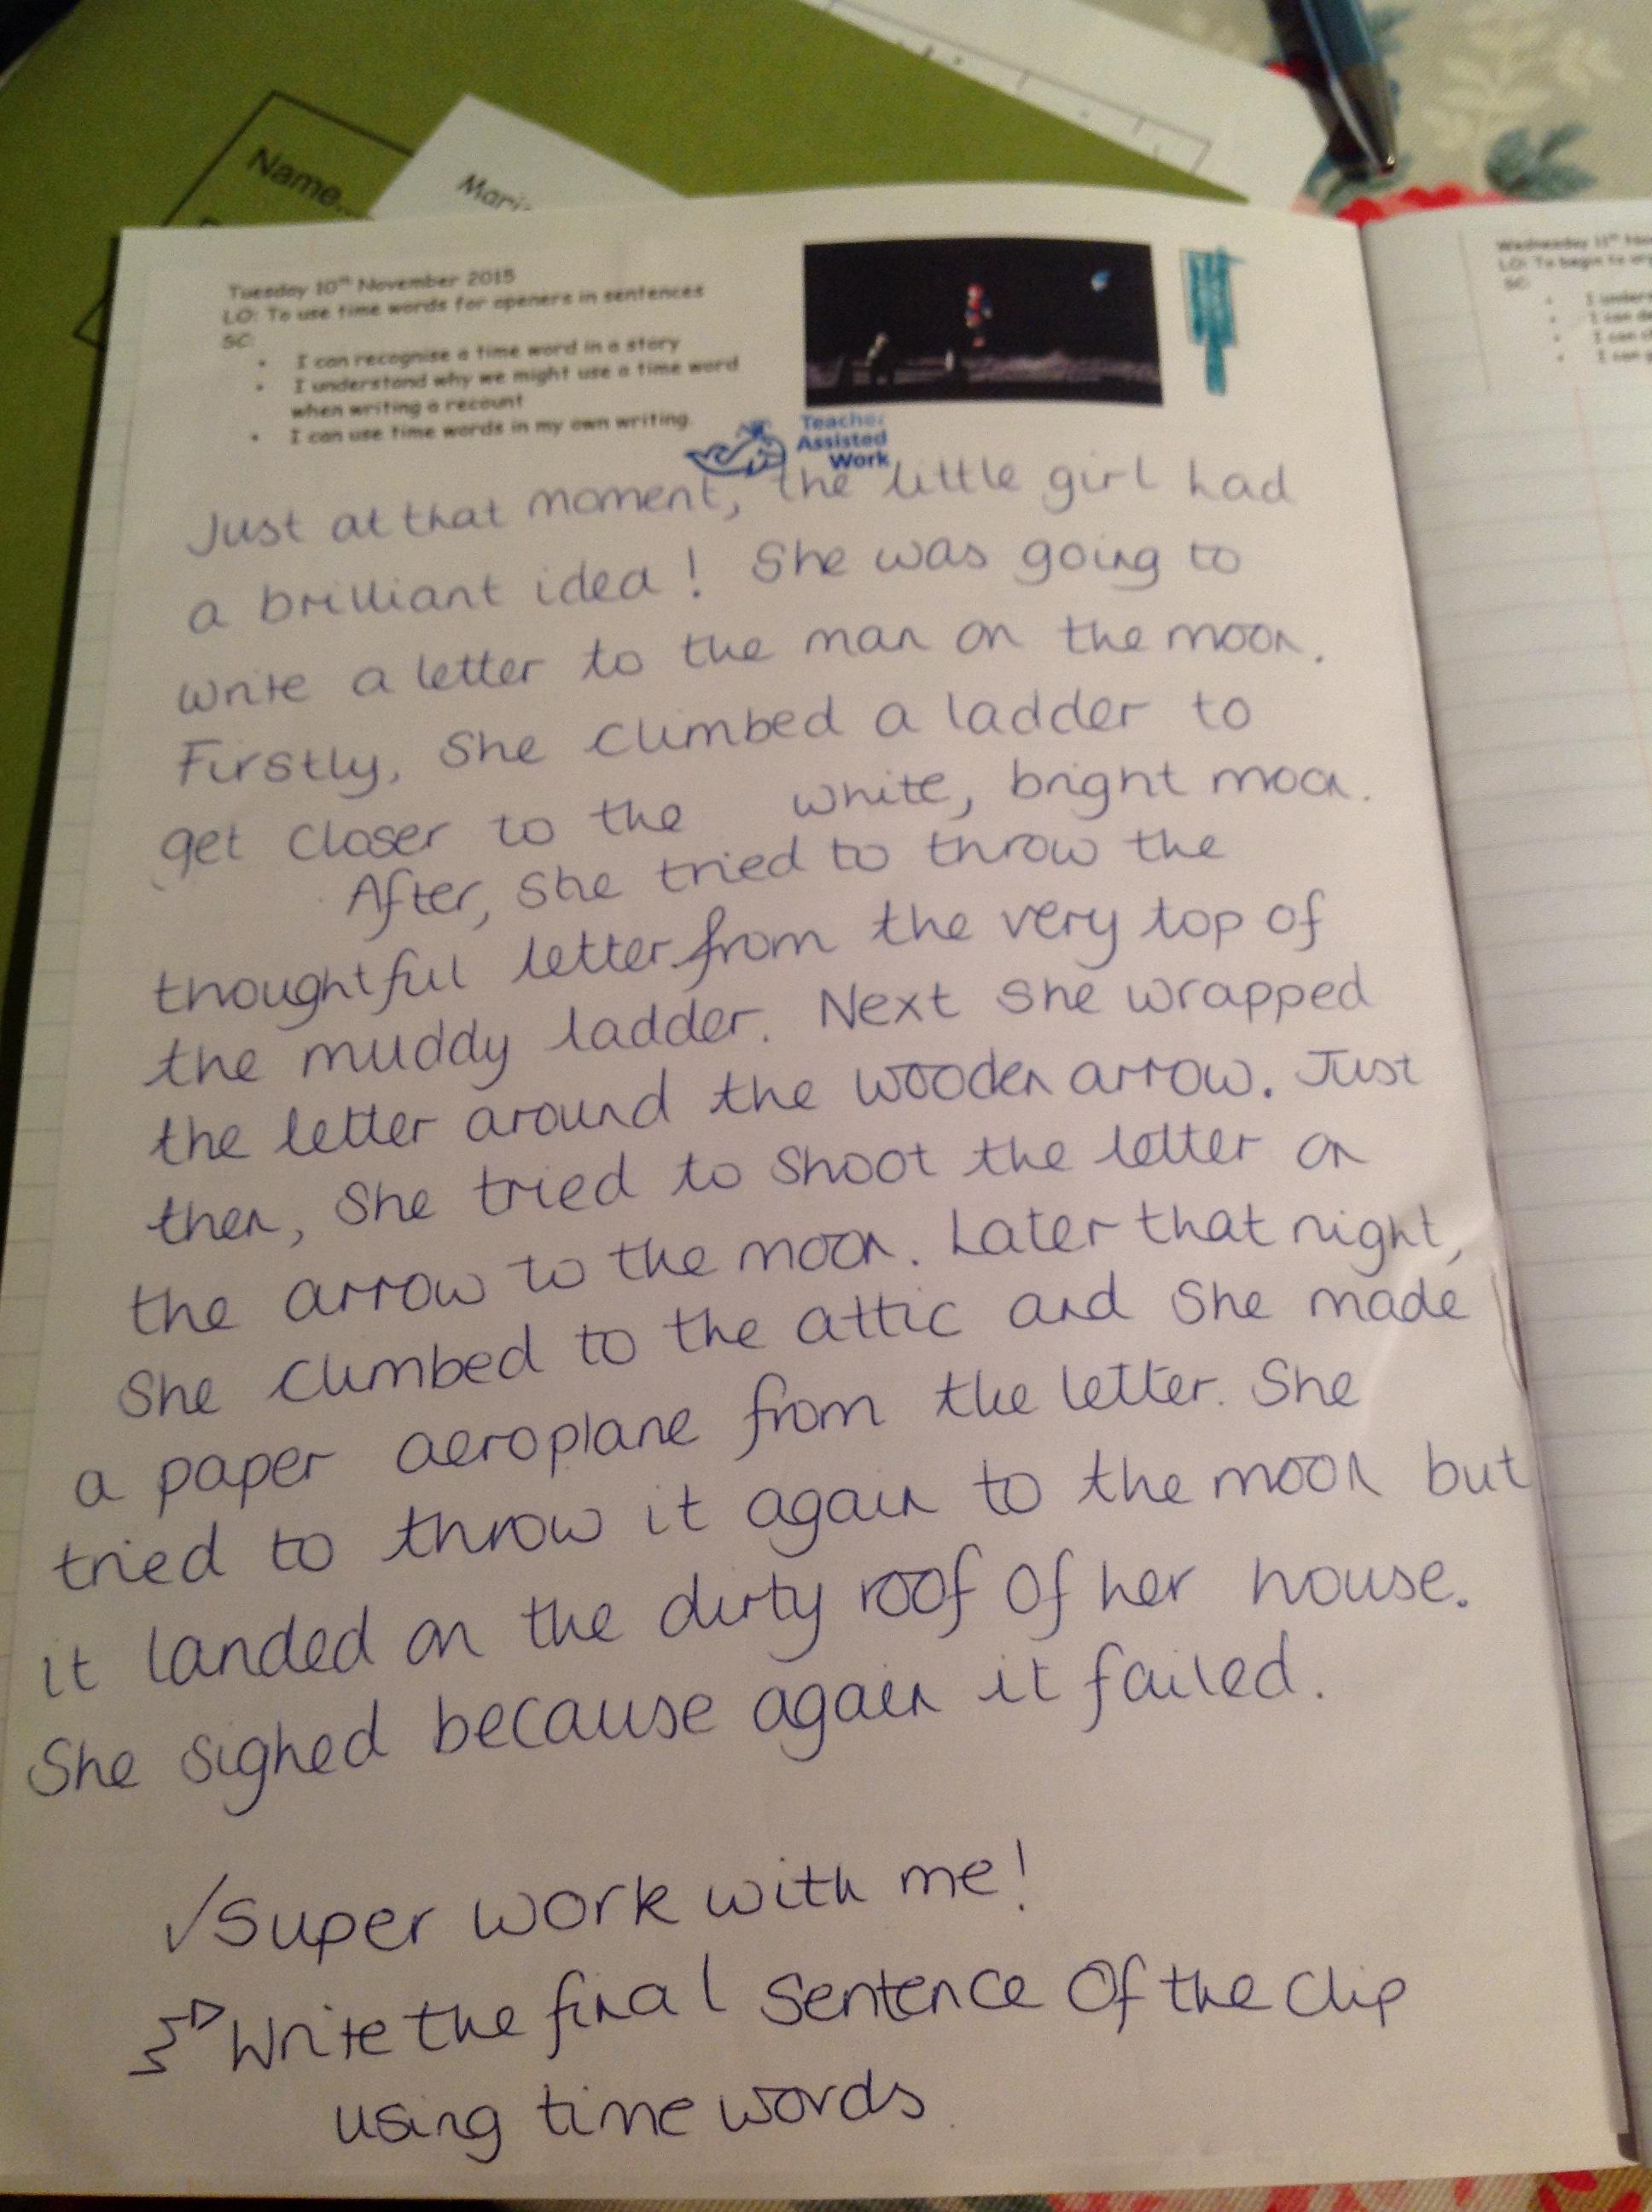 Name...
Mari
Tuesday 10th November 2015
LO: To use time words for openers in sentences
SC:
• I can recognise a time word in a story
• I understand why we might use a time word
when writing a recount
• I can use time words in my own writing.
Teacher
Assisted
Work
Just at that moment, the little girl had
a brilliant idea! She was going to
write a letter to the man on the moon.
Firstly, She climbed a ladder to
get closer to the white, bright moon.
After, She tried to throw the
thoughtful letter from the very top of
the muddy ladder. Next she wrapped
the letter around the wooden arrow. Just
then, She tried to shoot the letter on
the arrow to the moon. Later that night,
She climbed to the attic and she made
a paper aeroplane from the letter. She
tried to throw it again to the moon but
it landed on the dirty roof of her house.
She sighed because again it failed.
✓Super work with me!
Write the final sentence of the clip
using time words
Wednesday 11th
LO: To begin to
SC:
• I
• I can
• I can
• I can